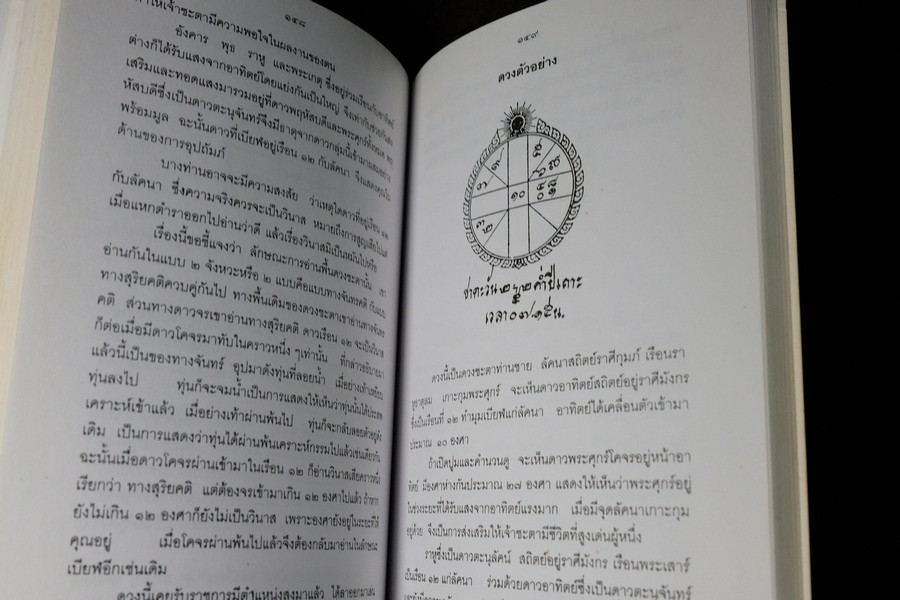 ๑๔๘
ทำให้เจ้าชะตามีความพอใจในผลงานของตน
อังคาร พุธ ราหู และพระเกตุ ซึ่งอยู่ร่วมเรือนกับอาทิตย์
ต่างก็ได้รับแสงจากอาทิตย์โดยแย่งกันเป็นใหญ่ จึงเท่ากับช่วยกันส่ง
เสริมและทอดแสงมารวมอยู่ที่ดาวพฤหัสบดีและพระศุกร์ทั้งหมด
หัสบดีซึ่งเป็นดาวตะนุจันทร์จึงมีธาตุจากดาวกลุ่มนี้เข้ามาผสมอย่าง
พร้อมมูล ฉะนั้นดาวที่เบียฬอยู่เรือน ๑๒ กับลัคนา จึงแสดงคุณใน
ด้านของการอุปถัมภ์
บางท่านอาจจะมีความสงสัย ว่าเหตุใดดาวที่อยู่เรือน ๑๒
กับลัคนา ซึ่งความจริงควรจะเป็นวินาส หมายถึงการสูญเสียไปแต่
เมื่อแหกตำราออกไปอ่านว่าดี แล้วเรื่องวินาสมิเป็นหมันไปหรือ
เรื่องนี้ขอชี้แจงว่า ลักษณะการอ่านพื้นดวงชะตานั้น เขา
อ่านกันในแบบ ๒ จังหวะหรือ ๒ แบบคือแบบทางจันทรคติ กับแบบ
ทางสุริยคติควบคู่กันไป ทางพื้นเดิมของดวงชะตาเขาอ่านทางจันทร
คติ ส่วนทางดาวจรเขาอ่านทางสุริยคติ ดาวเรือน ๑๒ จะเป็นวินาส
ก็ต่อเมื่อมีดาวโคจรมาทับในคราวหนึ่ง ๆเท่านั้น ที่กล่าวอธิบายมา
แล้วนี้เป็นของทางจันทร์ อุปมาดังทุ่นที่ลอยน้ำ เมื่อย่างเท้าเหยียบ
ทุ่นลงไป ทุ่นก็จะจมน้ำเป็นการแสดงให้เห็นว่าทุ่นนั้นได้ประสพ
เคราะห์เข้าแล้ว เมื่อย่างเท้าผ่านพ้นไป ทุ่นก็จะกลับลอยตัวอยู่ดัง
เดิม เป็นการแสดงว่าทุ่นได้ผ่านพ้นเคราะห์กรรมไปแล้วเช่นเดียวกัน
ฉะนั้นเมื่อดาวโคจรผ่านเข้ามาในเรือน ๑๒ ก็อ่านวินาสเสียคราวหนึ่ง
เรียกว่า ทางสุริยคติ แต่ต้องจรเข้ามาเกิน ๑๒ องศาไปแล้ว ถ้าหาก
ยังไม่เกิน ๑๒ องศาก็ยังไม่เป็นวินาส เพราะองศายังอยู่ในระยะที่ให้
คุณอยู่ เมื่อโคจรผ่านพ้นไปแล้วจึงต้องกลับมาอ่านในลักษณะ
เบียฬอีกเช่นเดิม
ดวงนี้เคยรับราชการมีตำแหน่งสูงมาแล้ว ได้ลาออกมาเล่น
๑๔๙
ดวงตัวอย่าง
๑๐
เวลา ๐๗/๑๕น.
ดวงนี้เป็นดวงชะตาท่านชาย ลัคนาสถิตย์ราศีกุมภ์ เรือนรา
หูธาตุลม เกาะกุมพระศุกร์ จะเห็นดาวอาทิตย์สถิตย์อยู่ราศีมังกร
ซึ่งเป็นเรือนที่ ๑๒ ทำมุมเบียฬแก่ลัคนา อาทิตย์ได้เคลื่อนตัวเข้ามา
ประมาณ ๑๐ องศา
ถ้าเปิดปูมและคำนวนดู จะเห็นดาวพระศุกร์โคจรอยู่หน้าอา
ทิตย์ มีองศาห่างกันประมาณ ๒๗ องศา แสดงให้เห็นว่าพระศุกร์อยู่
ในช่วงระยะที่ได้รับแสงจากอาทิตย์แรงมาก เมื่อมีจุดลัคนาเกาะกุม
อยู่ด้วย จึงเป็นการส่งเสริมให้เจ้าชะตามีชีวิตที่สูงเด่นผู้หนึ่ง
ราหูซึ่งเป็นดาวตะนุลัคน์ สถิตย์อยู่ราศีมังกร เรือนพระเสาร์
เป็นเรือน ๑๒ แก่ลัคนา ร่วมด้วยดาวอาทิตย์ซึ่งเป็นดาวตะนุจันทร์